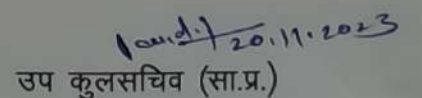 20.11.2023
उप कुलसचिव (सा.प्र.)